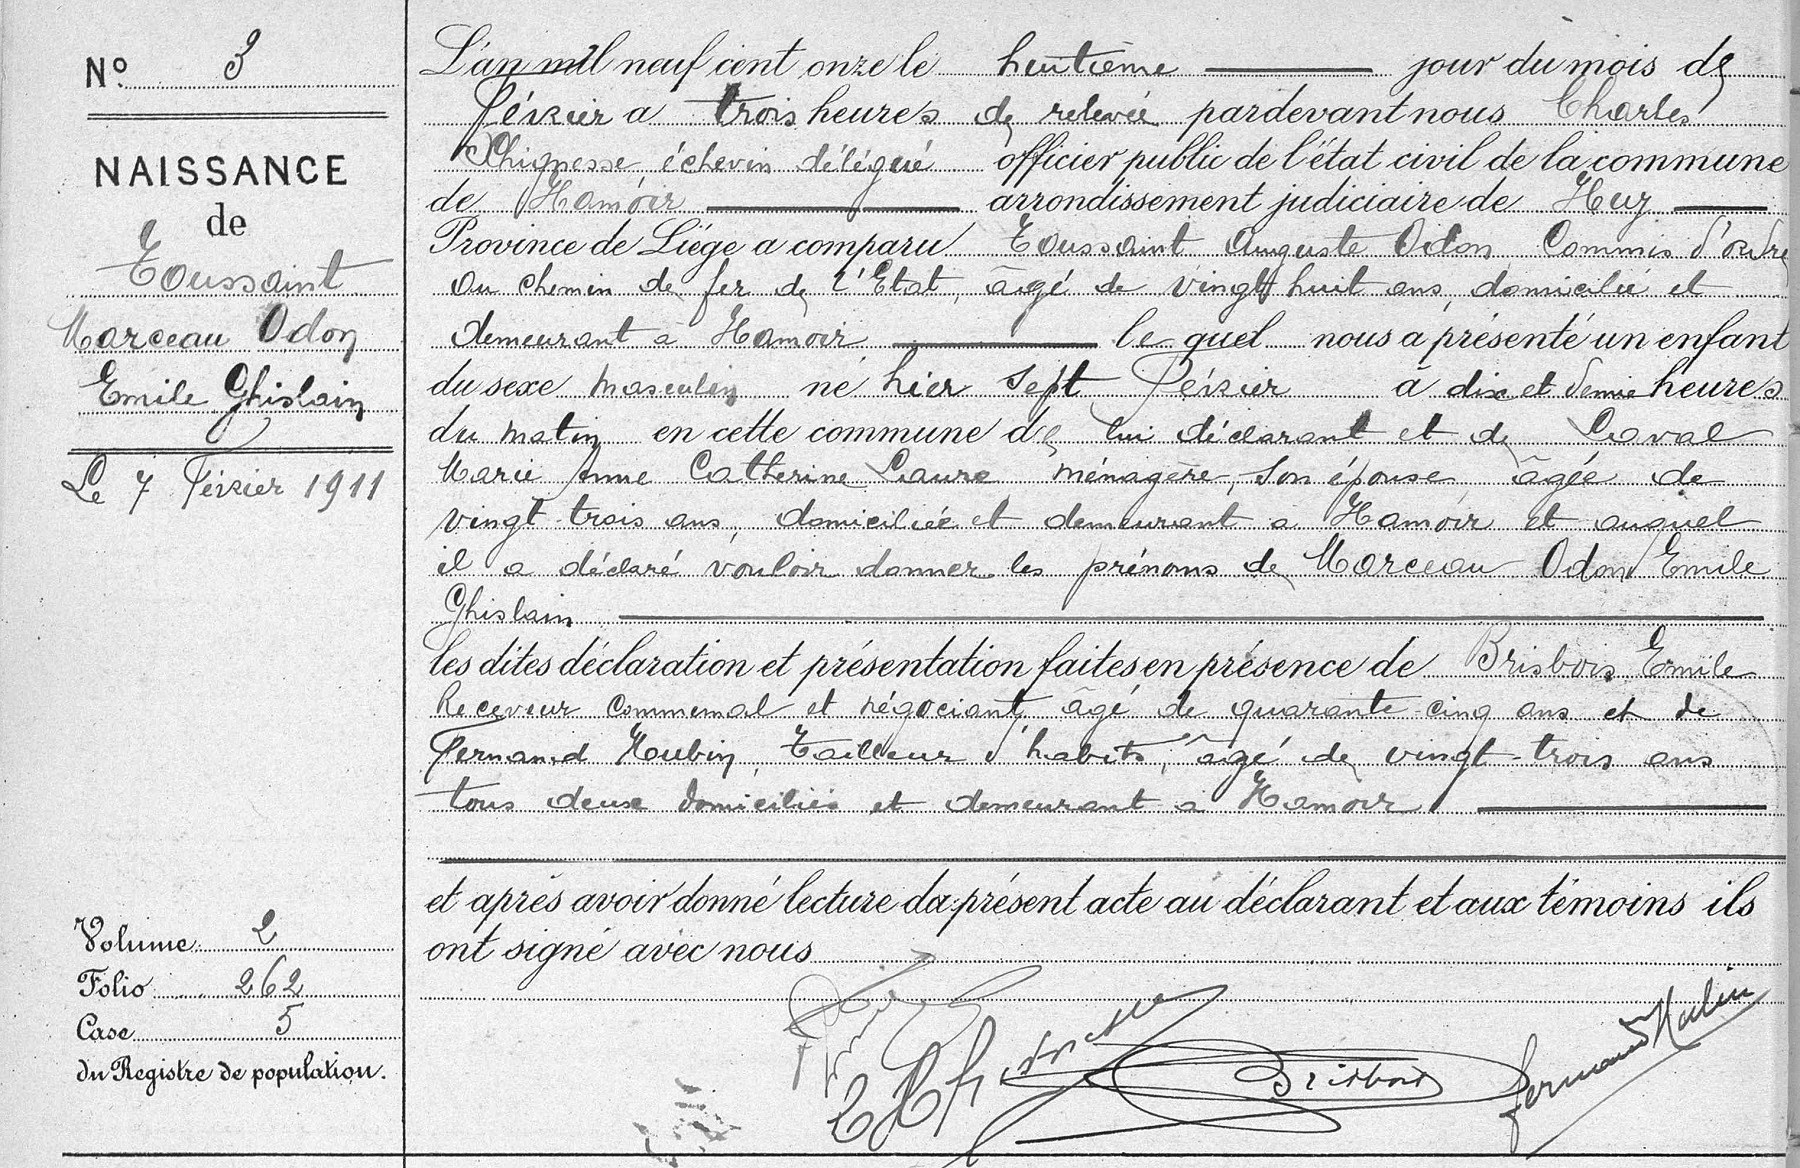 N° 3
NAISSANCE
de
Toussaint
Marceau Odon
Emile Ghislain
Le 7 Février 1911
Volume 2
Folio 262
Case 5
du Registre de population.
L'an mil neuf cent onze le huitième jour du mois de
Février a trois heures de relevée pardevant nous Charles
Chignesse échevin délégué officier public de l'état civil de la commune
de Hamoir arrondissement judiciaire de Huy
Province de Liége a comparu Toussaint Auguste Odon Commis d'ordre
au chemin de fer de l'Etat, âgé de vingt huit ans, domicilié et
demeurant à Hamoir le quel nous a présenté un enfant
du sexe masculin né hier sept Février à dix et demie heures
du matin en cette commune de lui déclarant et de Laval
Marie Anne Catherine Laure, ménagère, son épouse, âgée de
vingt trois ans, domiciliée et demeurant a Hamoir et auquel
il a déclaré vouloir donner les prénoms de Marceau Odon Emile
Ghislain
les dites déclaration et présentation faites en présence de Brisbois Emile
Receveur communal et négociant, âgé de quarante cinq ans et de
Fernand Hubin, Tailleur d'habits, âgé de vingt-trois ans
tous deux domiciliés et demeurant à Hamoir
et après avoir donné lecture du présent acte au déclarant et aux témoins ils
ont signé avec nous
Brisbois
Fernand Hubin